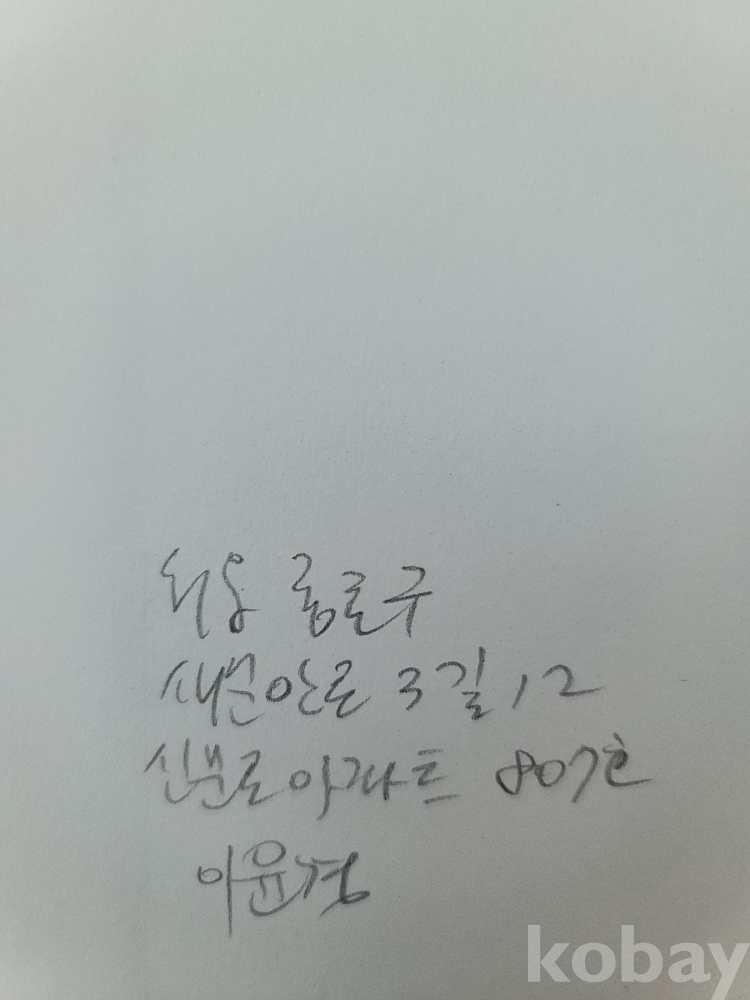 서울 종로구
새문안로 3길 12
신문로아파트 807호
이윤경
kobay